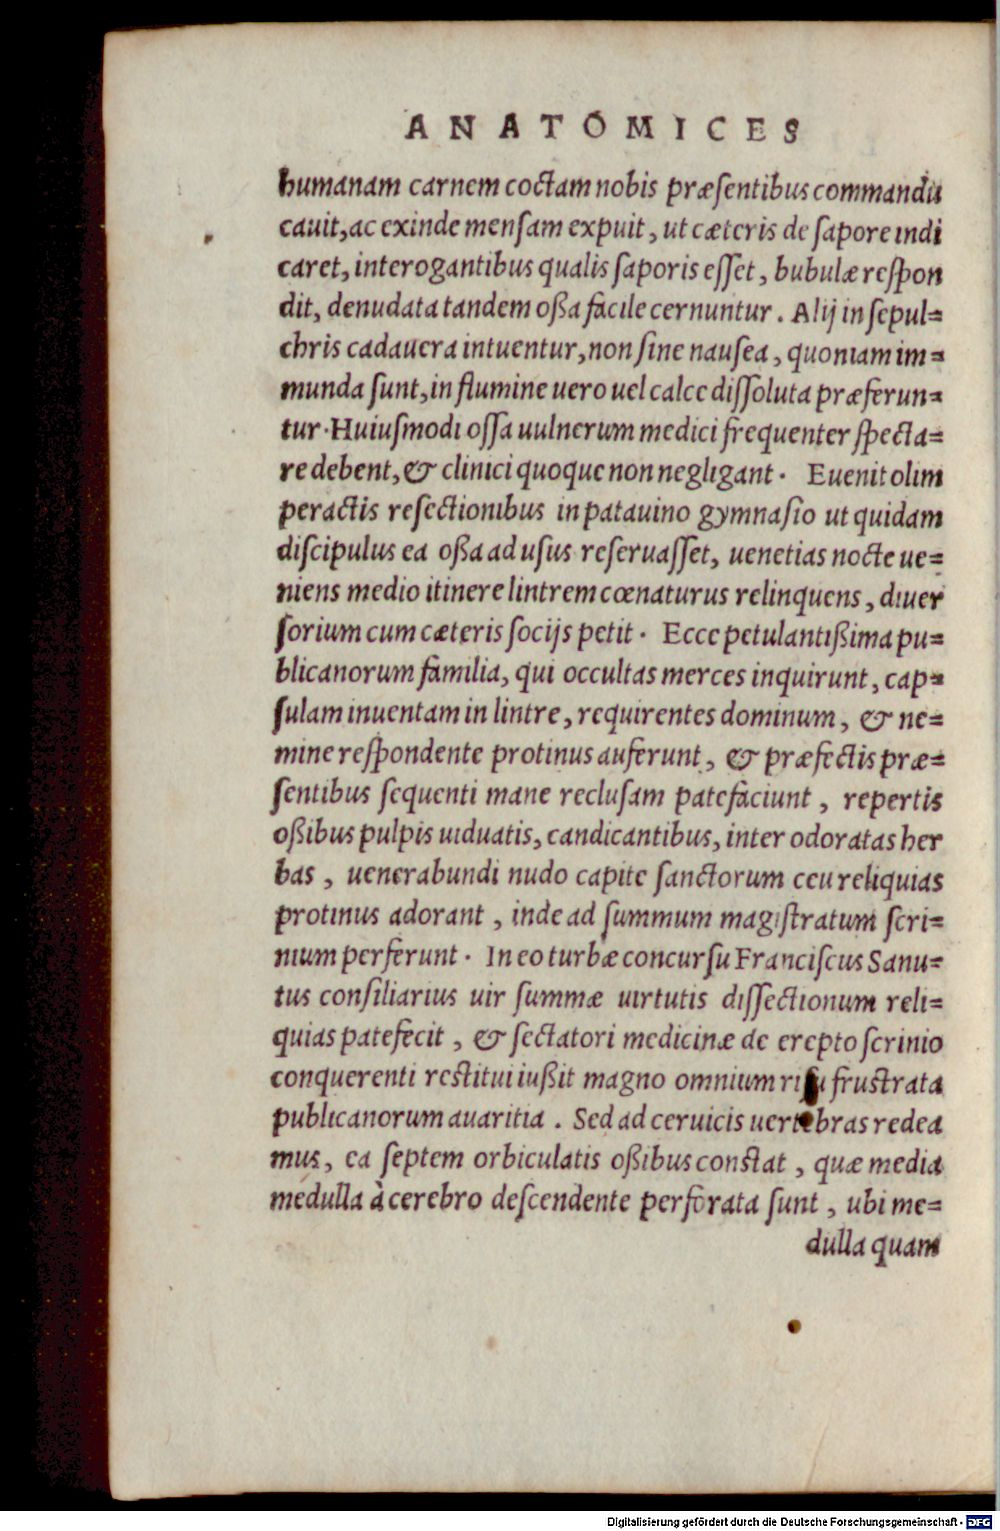 ANATOMICES
humanam carnem coctam nobis præſentibus commandu
cauit, ac exinde menſam expuit, ut cæteris de ſapore indi
caret, interogantibus qualis ſaporis eſſet, bubulæ reſpon
dit, denudata tandem oßa facile cernuntur. Alij in ſepul=
chris cadauera intuentur, non ſine nauſea, quoniam im=
munda ſunt, in flumine uero uel calce diſſoluta præferun=
tur. Huiuſmodi oſſa uulnerum medici frequenter ſpecta=
re debent, & clinici quoque non negligant. Euenit olim
peractis reſectionibus in patauino gymnaſio ut quidam
diſcipulus ea oßa ad uſus reſeruaſſet, uenetias nocte ue=
niens medio itinere lintrem cœnaturus relinquens, diuer
ſorium cum cæteris ſocijs petit. Ecce petulantißima pu=
blicanorum familia, qui occultas merces inquirunt, cap=
ſulam inuentam in lintre, requirentes dominum, & ne=
mine reſpondente protinus auferunt, & præfectis præ=
ſentibus ſequenti mane recluſam patefaciunt, repertis
oßibus pulpis uiduatis, candicantibus, inter odoratas her
bas, uenerabundi nudo capite ſanctorum ceu reliquias
protinus adorant, inde ad ſummum magiſtratum ſcri=
nium perferunt. In eo turbæ concurſu Franciſcus Sanu=
tus conſiliarius uir ſummæ uirtutis diſſectionum reli=
quias patefecit, & ſectatori medicinæ de erepto ſcrinio
conquerenti reſtitui iußit magno omnium riſu fruſtrata
publicanorum auaritia. Sed ad ceruicis uertebras redea
mus, ea ſeptem orbiculatis oßibus conſtat, quæ media
medulla à cerebro deſcendente perforata ſunt, ubi me=
dulla quam
Digitalisierung gefördert durch die Deutsche Forschungsgemeinschaft - DFG